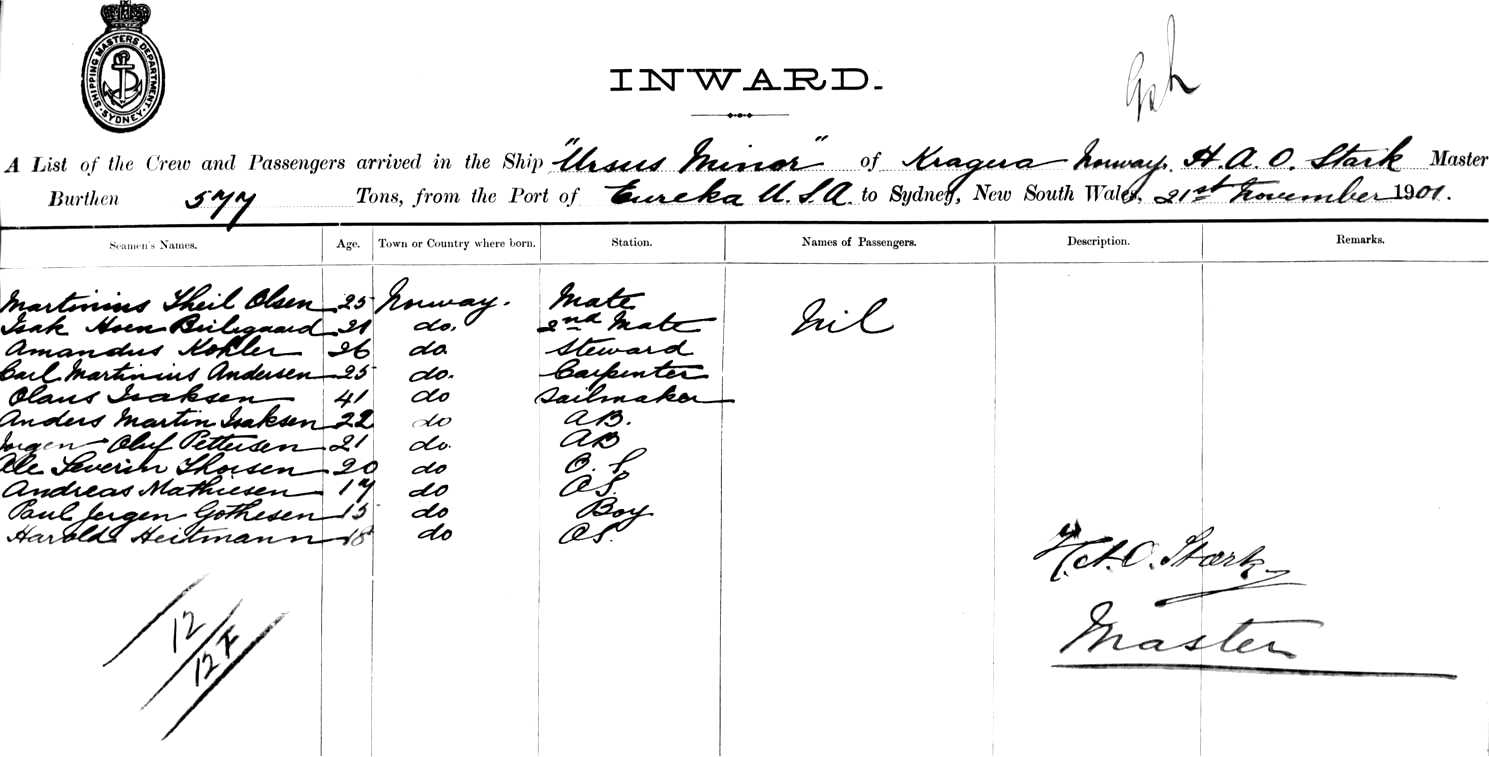 SHIPPING MASTERS DEPARTMENT
SYDNEY
INWARD.
A List of the Crew and Passengers arrived in the Ship "Ursus Minor" of Kragera Norway, H. A. O. Stark Master
Burthen 577 Tons, from the Port of Eureka U.S.A. to Sydney, New South Wales, 21st November 1901.
Seamen's Names. Age. Town or Country where born. Station. Names of Passengers. Description. Remarks.
Martinius Theil Olsen 25 Norway. Mate
Isak Hoen 21 do. 2nd Mate Nil
Amandus Kohler 26 do. Steward
Carl Martinius Andersen 25 do. Carpenter
Olaus Isaksen 41 do Sailmaker
Anders Martin Isaksen 22 do AB.
Jorgen Oluf Pettersen 21 do. AB
Ole Severin Thorsen 20 do O.S
Andreas Mathiesen 17 do OS.
Paul Jergen Gothesen 15 do Boy
Harold Heitmann 18 do OS.
H.A.O. Stork
Master
12
12 F